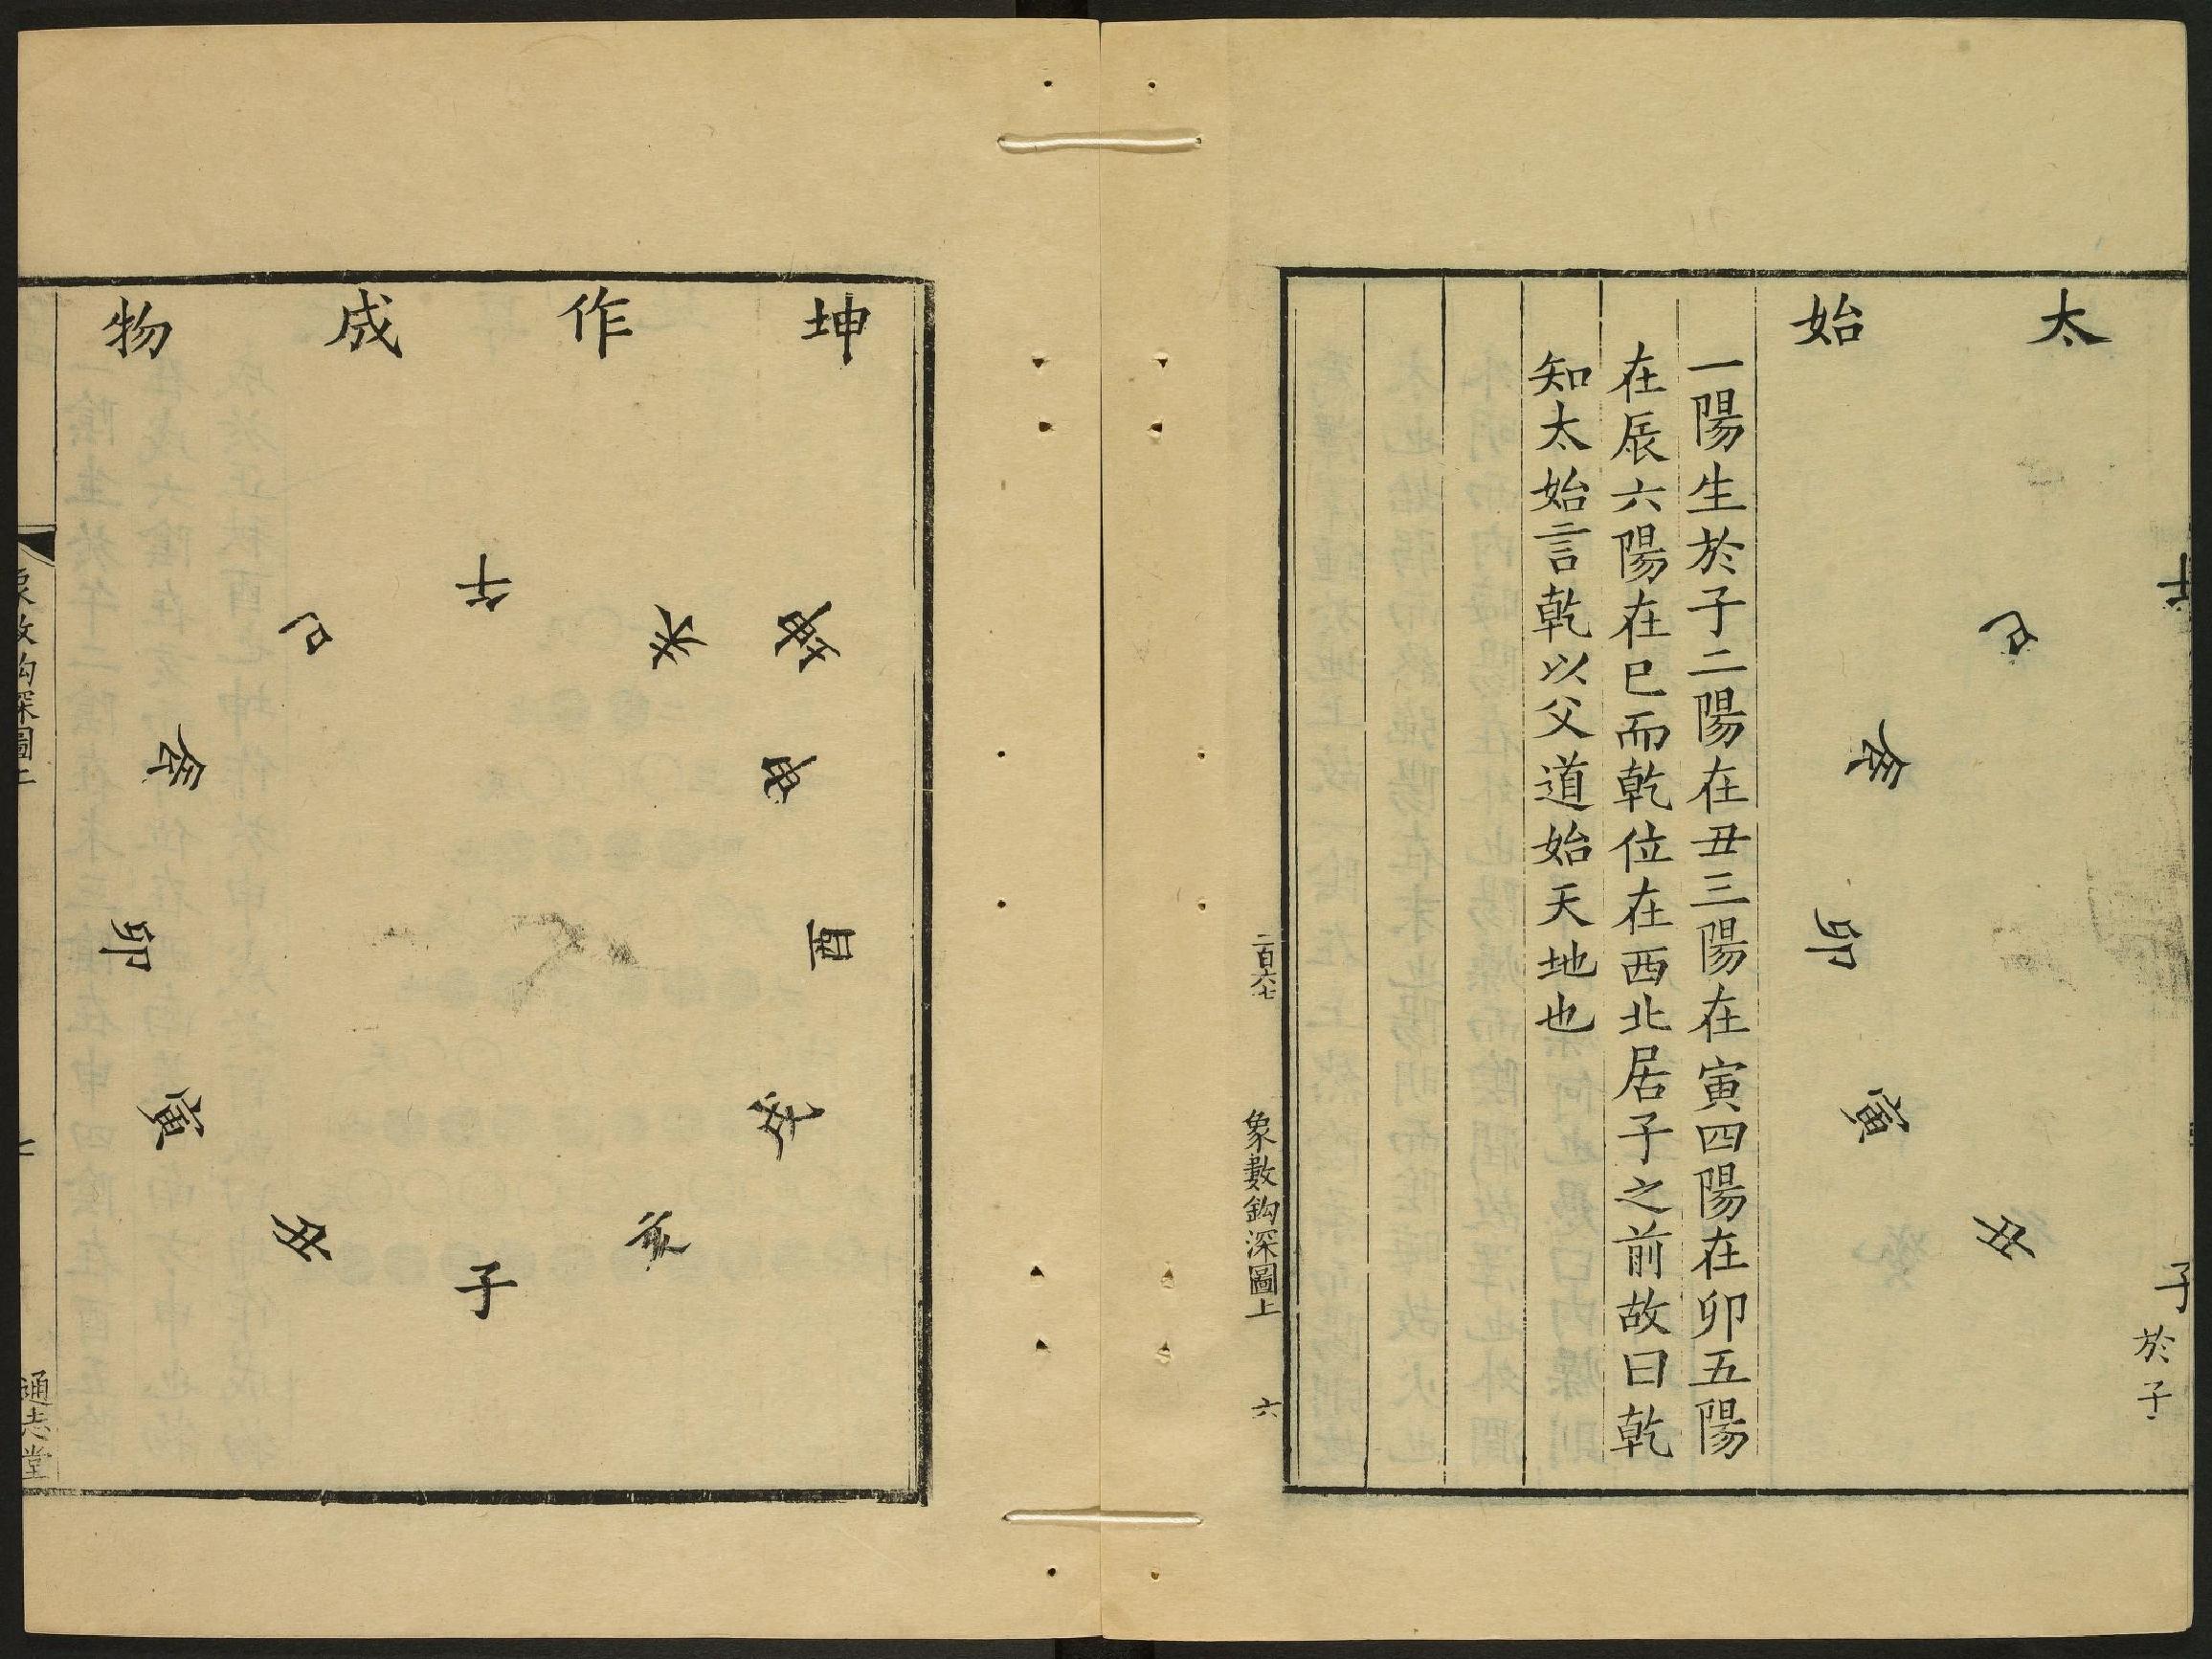 太始
午
巳
辰
卯
寅
丑
子
於子
一陽生於子二陽在丑三陽在寅四陽在卯五陽
在辰六陽在巳而乾位在西北居子之前故曰乾
知太始言乾以父道始天地也
二百六七
象數鈎深圖上
六
坤作成物
坤
午
未
申
酉
戌
亥
子
丑
寅
卯
辰
巳
象數鈎深圖上
七
通志堂